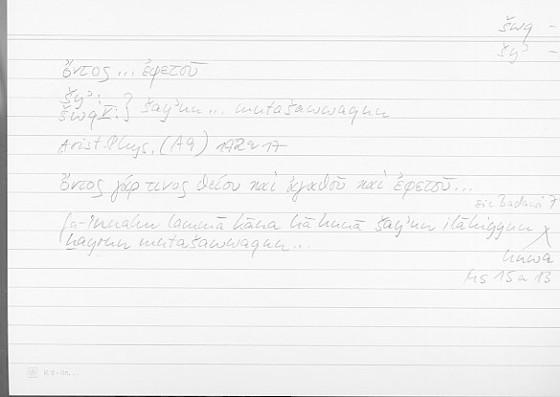 šwq –
šyʾ –
ὄντος ... ἐφετοῦ
šyʾ:
šwq V: } šayʾun ... mutašawwaqun
Arist. Phys. (A9) 192a 17
ὄντος γάρ τινος θείου καὶ ἀγαθοῦ καὶ ἐφετοῦ...
sic Badawī
fa-innahu lammā kāna hāhunā šayʾun ilāhiyyun
ḫayrun mutašawwaqun ...
huwa
Ms 15 a 13